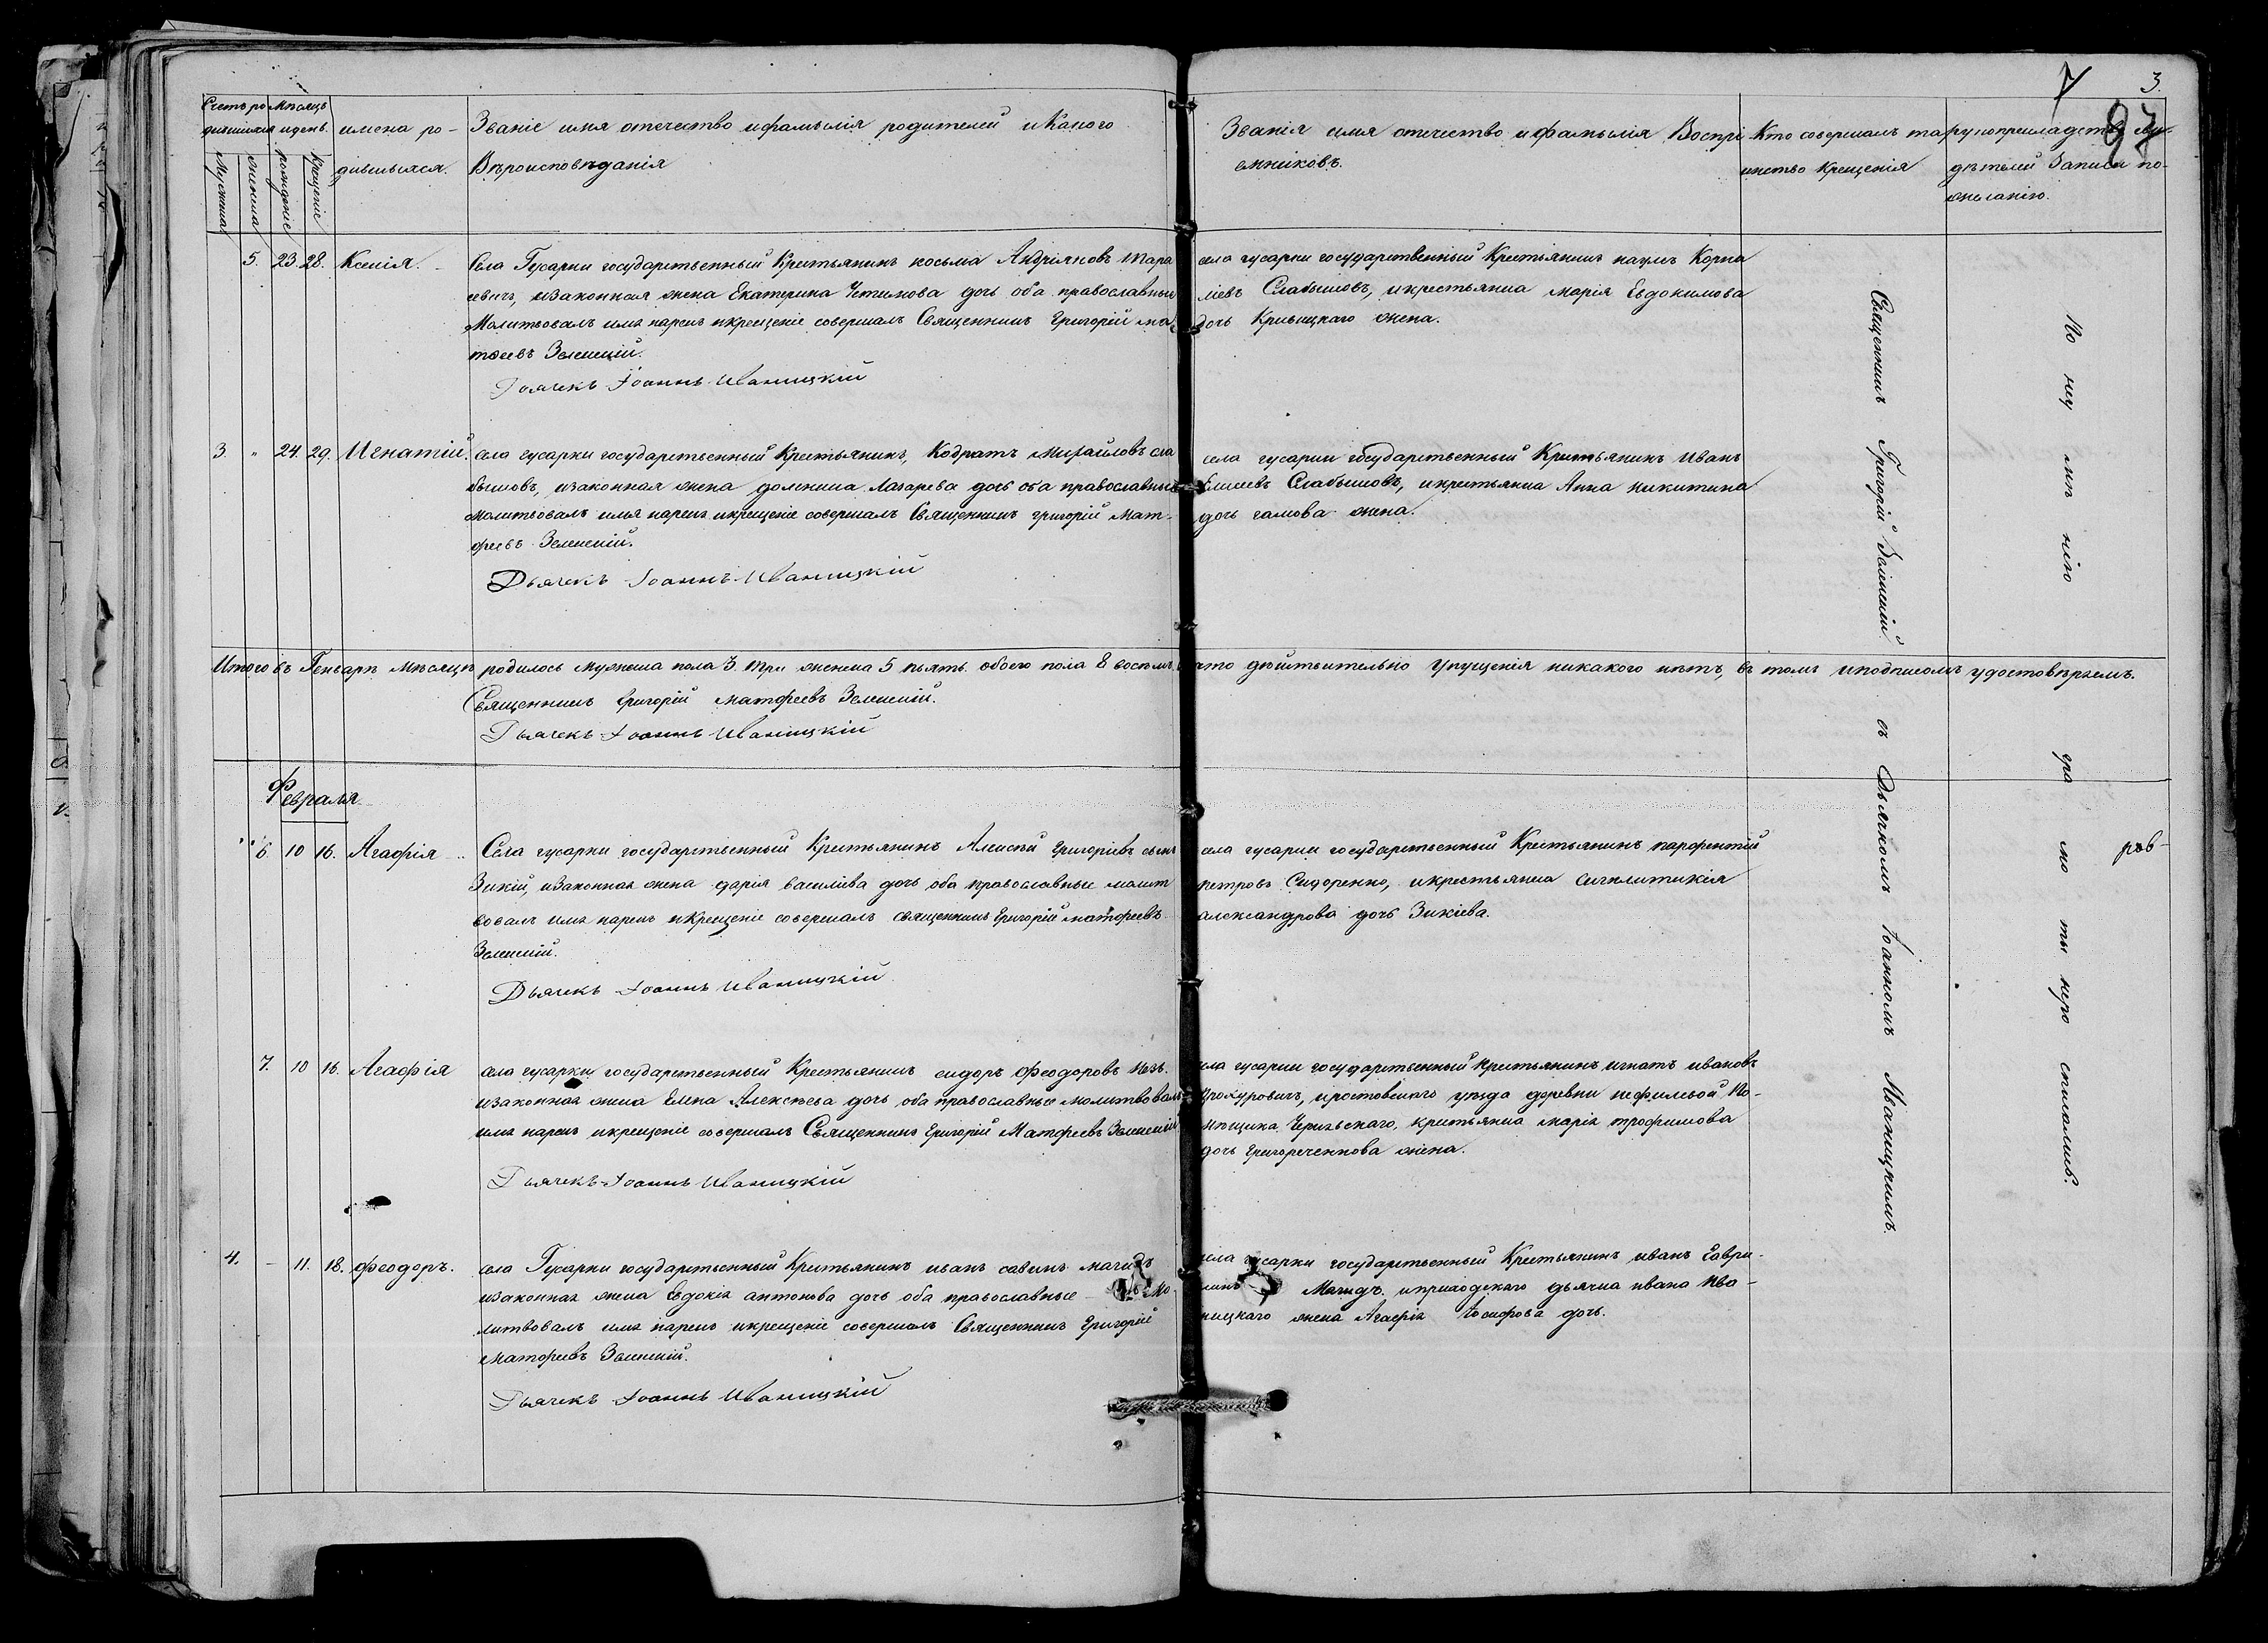 3.
97
Счетъ ро
дившихся
Мужеска
женска
Мѣсяцъ
и день.
рожденіе
Крещеніе
имена ро-
дившихся.
Званіе имя отечество и фамылія родителей и Какого
Вѣроисповѣданія
Званія имя отечество и фамылія Воспрі
емниковъ.
Кто совершалъ та
инство Крещенія
рукоприкладство сви-
дѣтелей Записи по-
желанію.
5. 23. 28. Ксенія.
Села Гусарки государственный Крестьянинъ косьма Андріяновъ Тара
севичъ, изаконная жена Екатерина Устимова дочь оба православныи
Молитвовалъ имя нарекъ икрещеніе совершалъ Священникъ Григорій ма
тѳеевъ Зеленскій.
Дьячекъ Іоаннъ Иваницкій
села гусарки государственный Крестьянинъ наумъ Корни
ліевъ Слабышовъ, икрестьянка марія Евдокимова
дочь Кривицкаго жена.
3. " 24. 29. Игнатій.
села гусарки государственный Крестьянинъ, Кодратъ Михайловъ сла
бышовъ, изаконная жена домникиа Лазарева дочь оба православныи
Молитвовалъ имя нарекъ икрещеніе совершалъ Священникъ григорій Мат-
феевъ Зеленскій.
Дьячекъ Іоаннъ Иваницкій
села гусарки государственный Крестьянинъ Иванъ
Елисеевъ Слабышовъ, икрестьянка Анна никитина
дочь гамова жена.
Итого въ Генварѣ мѣсяцѣ родилось мужеска пола 3. три женска 5 пьять. обоего пола 8 восьмъ, что дѣйствительно упущенія никакого нѣтъ, въ томъ иподписомъ удостовѣряемъ.
Священникъ Григорій матфеевъ Зеленскій.
Дьячекъ Іоаннъ Иваницкій
Февраля
6. 10 16. Агафія
Села гусарки государственный Крестьянинъ Алексѣй Григоріевъ сынъ
Зикій, изаконная жена дарія василіва дочь оба православные молит
вовалъ имя нарекъ икрещеніе совершалъ священникъ Григорій матфеевъ
Зеленскій.
Дьячекъ Іоаннъ Иваницкій
села гусарки государственный Крестьянинъ парфентій
петровъ Сидоренко, икрестьянка сигклитикія
александрова дочь Зикіева.
7. 10 16. Агафія
села гусарки государственный Крестьянинъ сидоръ феодоровъ
изаконная жена Елена Алексѣева дочь оба православные молитвовалъ
имя нарекъ икрещеніе совершалъ Священникъ Григорій Матфеевъ Зеленскій
Дьячекъ Іоаннъ Иваницкій
села гусарки государственный крестьянинъ игнатъ ивановъ
иростовскаго уѣзда деревни нефильвой По-
мѣщика крестьянка марія трофимова
дочь Григореченкова жена.
4. - 11. 18. феодоръ.
села Гусарки государственный Крестьянинъ иванъ савинъ магидъ
изаконная жена Евдокія антонова дочь оба православные Мо-
литвовалъ имя нарекъ икрещеніе совершалъ Священникъ Григорій
Матфеевъ Зеленскій.
Дьячекъ Іоаннъ Иваницкій
села гусарки государственный Крестьянинъ иванъ Гаври-
Магидъ. иприходскаго дьячка ивана ива-
ницкаго жена Агафія Іосифова дочь.
Священникъ Григорій Зеленскій съ Дьячкомъ Іоанномъ Иваницкимъ.
По неу мѣ нію гра мо ты неро списались.